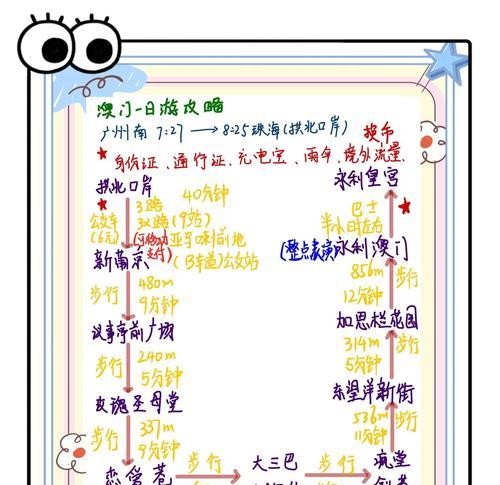 澳门一日游攻略
广州南 7:27 → 8:25 珠海(拱北口岸) 换币
★身份证、通行证、充电宝、雨伞、境外流量
拱北口岸
公交车(6元)
3路
3X路(9站)
40分钟
亚马喇前地
(B车道)公交站
新葡京
步行
480m
9分钟
议事亭前广场
步行
240m
5分钟
玫瑰圣母堂
步行
337m
9分钟
恋爱巷
步行
大三巴
步行
疯堂
步行
536m
11分钟
东望洋新街
步行
314m
5分钟
加思栏花园
步行
856m
12分钟
(整点表演)永利澳门
巴士
半小时左右
永利皇宫